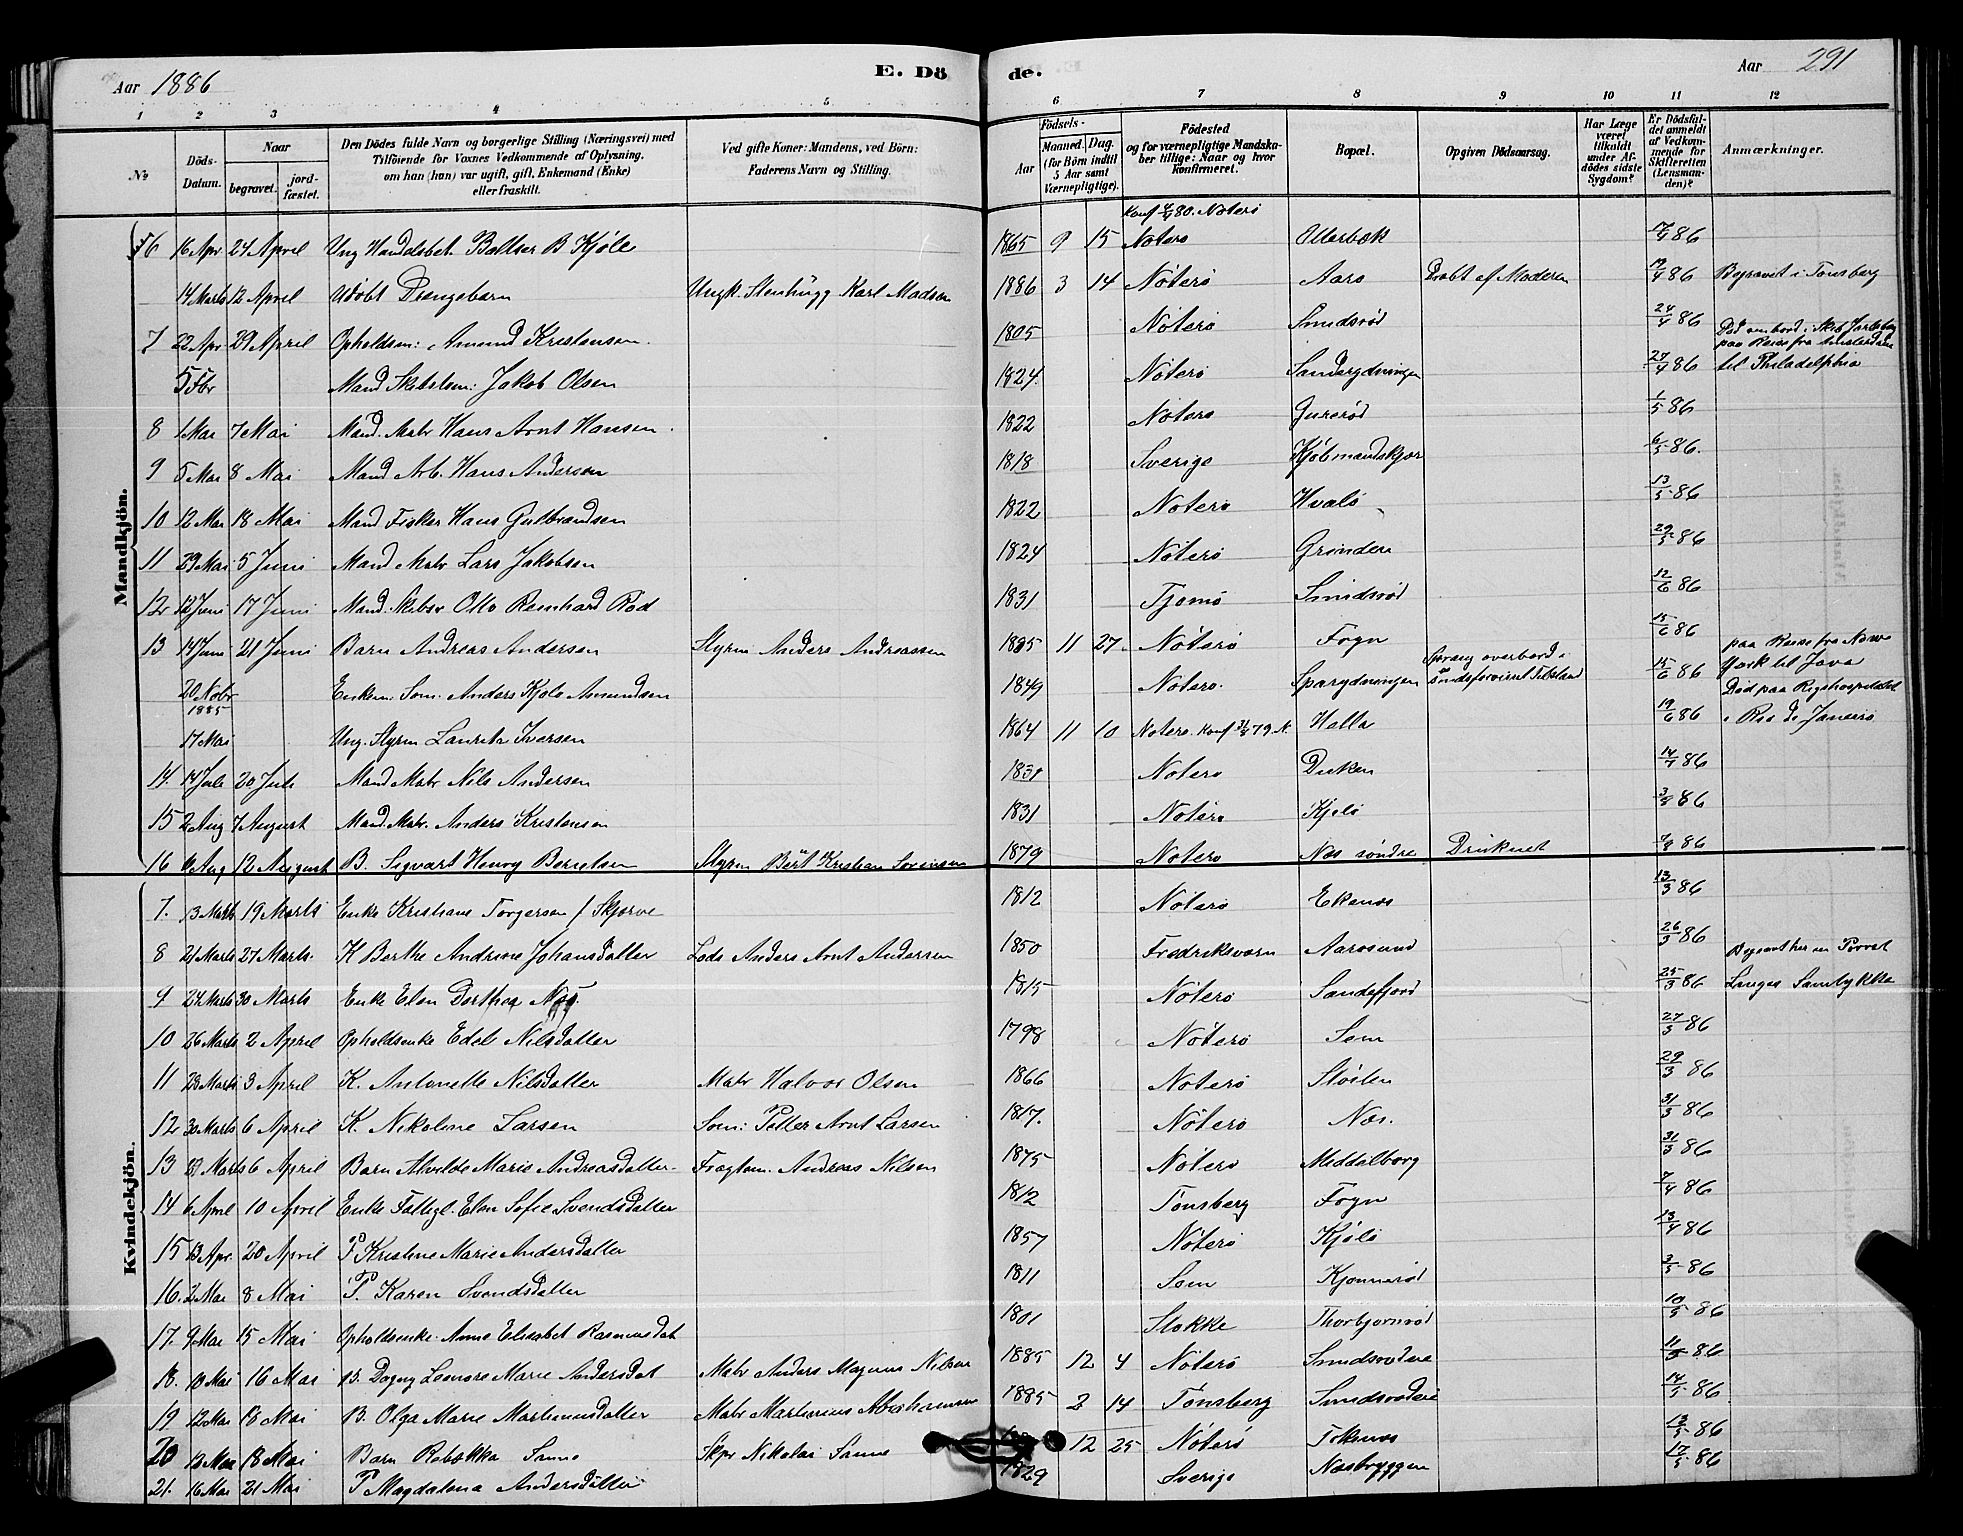 Aar 1886
E. Dö
de.
Aar 291
1 2 3 4 5 6 7 8 9 10 11 12
No
Döds-Datum.
Naar
begravet.
jord-fæstet.
Den Dödes fulde Navn og borgerlige Stilling (Næringsvei) med
Tilföiende for Voxnes Vedkommende af Oplysning.
om han (hun) var ugift, gift, Enkemand (Enke)
eller fraskilt.
Ved gifte Koner: Mandens, ved Börn:
Faderens Navn og Stilling.
Födsels-
Aar
Maaned. Dag.
(for Börn indtil
5 Aar samt
Værnepligtige).
Födested
og for værnepligtige Mandska-
ber tillige: Naar og hvor
konfirmeret.
Bopæl.
Opgiven Dödsaarsag.
Har Læge
været
tilkaldt
under Af-
dødes sidste
Sygdom?
Er Dödsfal-
det anmeldt
af Vedkom-
mende for
Skifteretten
(Lensman-
den)?
Anmærkninger.
Mandkjön.
Konf 80. Nøterø
6 16 Apr 24 April Ung Handelsbet. Baltser B Kjøle 1865 9 15 Nøterø Ollerbæk 17/4 86
14 Marts 12 April Udøbt Drengebarn Ungk. Stenhugg Karl Madsen 1886 3 14 Nøterø Aarø Dræbt af Moderen 17/4 86 Begravet i Tønsberg
7 22 Apr 29 April Opholdsm: Amund Kristensen 1805 Nøterø Smidsrød 24/4 86
Død ombord i Skib Jarlsberg
paa Reise fra Amsterdam
til Philadelphia
5 Fbr Mand Skibstøm: Jakob Olsen 1824 Nøterø Sanderydningen 27/4 86
8 1 Mai 7 Mai Mand. Matr Hans Arnt Hansen 1822 Nøterø Gurerød 1/5 86
9 5 Mai 8 Mai Mand Arb. Hans Andersen 1818 Sverige Kjøbmandskjær 6/5 86.
10 12 Mai 18 Mai Mand Fisker Hans Gulbrandsen 1822 Nøterø Hvalø 13/5 86
11 29 Mai 5 Juni Mand Matr Lars Jakobsen 1824 Nøterø Grindere 29/5 86
12 12 Juni 17 Juni Mand. Skibsr Otto Reinhard Rød 1831 Tjømø Smidsrød 12/6 86
13 14 Juni 21 Juni Barn Andreas Andersen Styrm Anders Andreassen 11 27 Nøterø Fogn 15/6 86
20 Nobr 1885 Enkem. Søm. Anders Kjølø Amundsen 1849 Nøterø. Spærydningen Sprang overbord i sindsforvirret Tilstand 15/6 86 paa Reise fra New York til Java
17 Mai Ung. Styrm Lauritz Iversen 1864 11 10 Nøterø. Konf 79 N. Halla 19/6 86 Død paa Rigshospitalet i Rio de Janeiro
14 14 Juli 20 Juli Mand Matr Nils Andersen 1831 Nøterø Duken 14/7 86
15 2 Aug 7 August Mand Matr. Anders Kristensen 1831 Nøterø Kjølø 3/8 86
16 6 Aug 12 August B. Sigvart Henry Berntsen Styrm Bernt Kristian Sørensen 1879 Nøterø Næs søndre Druknet 7/8 86
Kvindekjön.
7. 13 Marts 19 Marts Enke Kristiane Torgersen f Skjærve 1812 Nøterø Ekenæs 13/3 86
8 21 Marts 27 Marts. K Berthe Andrine Johansdatter Lods Anders Arnt Andersen 1850 Fredriksværn Aarøsund 26/3 86
9 24 Marts 30 Marts Enke Elen Dorthea Næs 1815 Nøterø Sandefjord 25/3 86 Begravet her m Provst Langes Samtykke
10 26 Marts 2 April Opholdsenke Edel Nilsdatter 1798 Nøterø Sem 27/3 86
11 28 Marts 3 April K. Antonette Nilsdatter Matr Halvor Olsen 1866 Nøterø Støiten 29/3 86
12 30 Marts 6 April K. Nikoline Larsen Søm: Petter Arnt Larsen 1817. Nøterø Næs. 31/3 86
13 29 Marts 6 April Barn Alvilde Marie Andreasdatter Fragtem. Andreas Nilsen 1875 Nøterø Meddelborg 31/3 86
14 6 April 10 April Enke Fattigl. Elen Sofie Svendsdatter 1812 Tønsberg Fogn 7/4 86
15 13 Apr. 20 April P Kristine Marie Andersdatter 1857 Nøterø Kjølø 13/4 86
16. 2 Mai 8 Mai P. Karen Svendsdatter 1811 Sem Kjønnerød 3/5 86
17. 9 Mai 15 Mai Opholdsenke. Anne Elisabet Rasmusdat 1801 Stokke Thorbjørnrød 10/5 86
18. 10 Mai 16 Mai B. Dagny Leonore Marie Andersdat Matr Anders Magnus Nilsen 1885 12 4 Nøterø Smidsrødeie 11/5 86
19 12 Mai 18 Mai B. Olga Marie Martinusdatter Matr Martinius Abrahamsen 1885 2 14 Tønsberg Smidsrødeie 14/5 86
20 13 Mai 18 Mai Barn Rebekka Sanne Skpr Nikolai Sanne 12 25 Nøterø 86
21. 16 Mai 21 Mai P Magdalena Andersdatter 1829 Sverige Næsbryggen 17/5 86